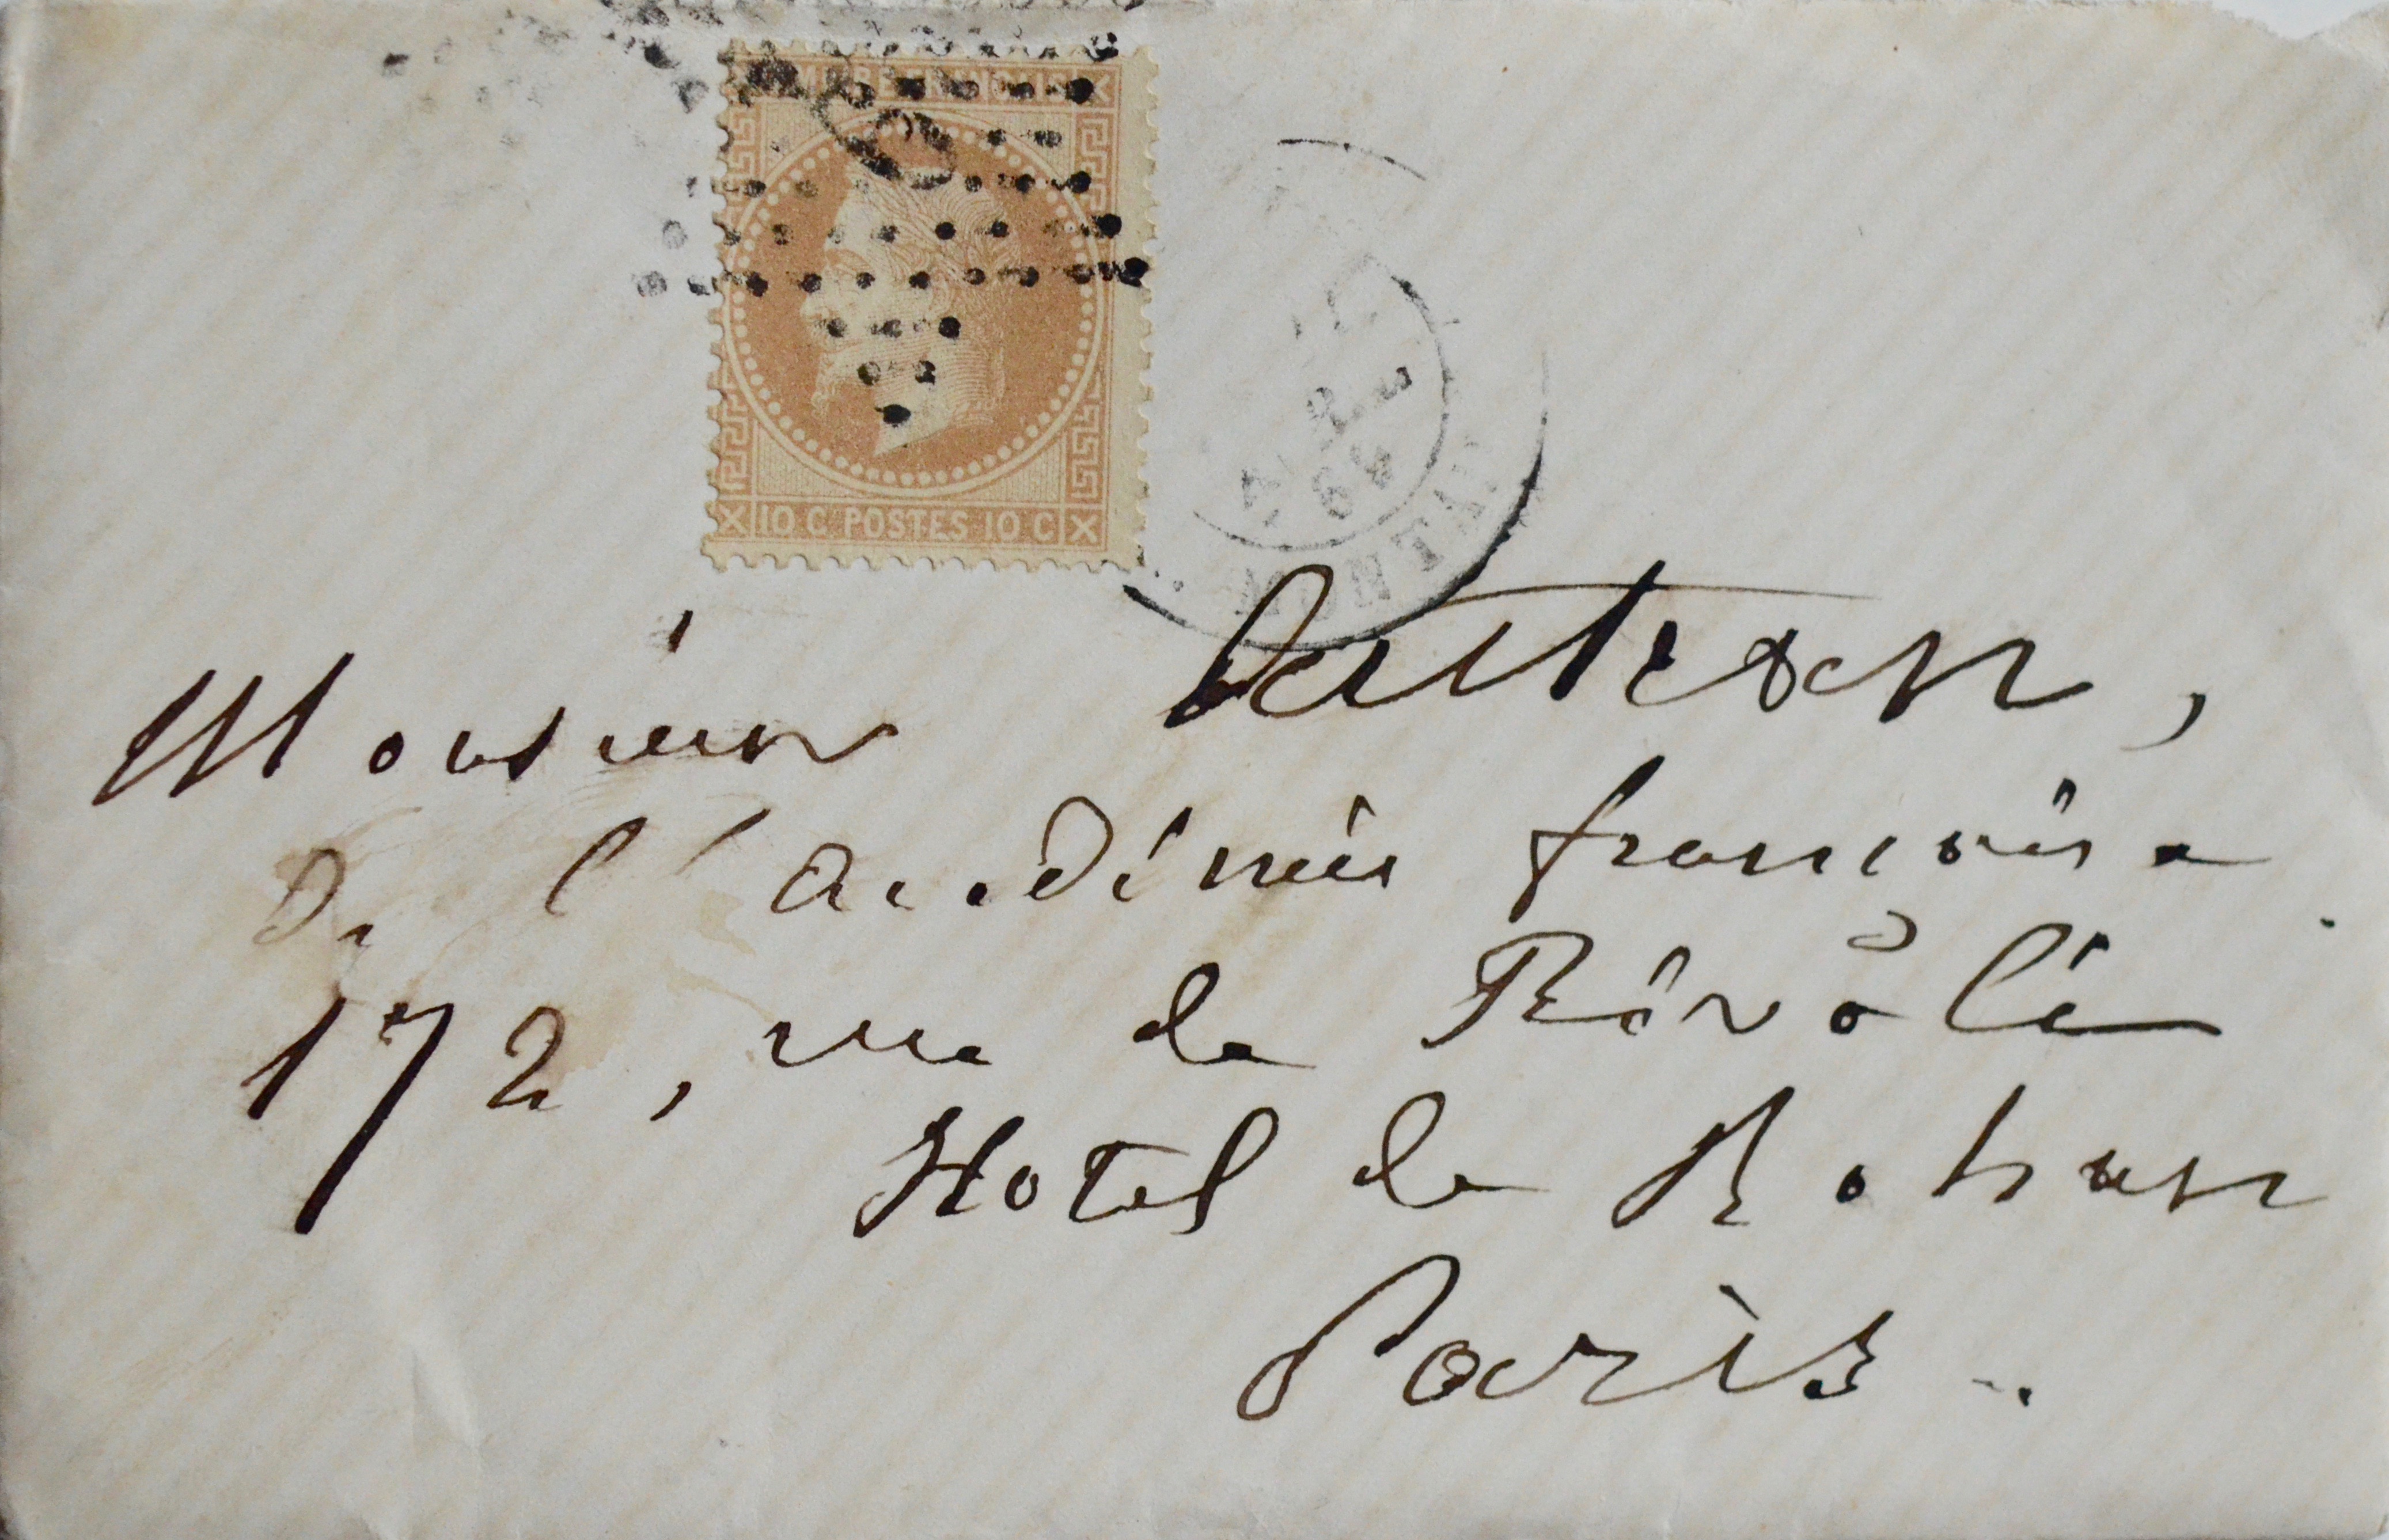 10 C POSTES 10 C
AVRIL
69
Monsieur Autran,
De l'académie française
172, rue de Rivoli
Hotel de Rohan
Paris.